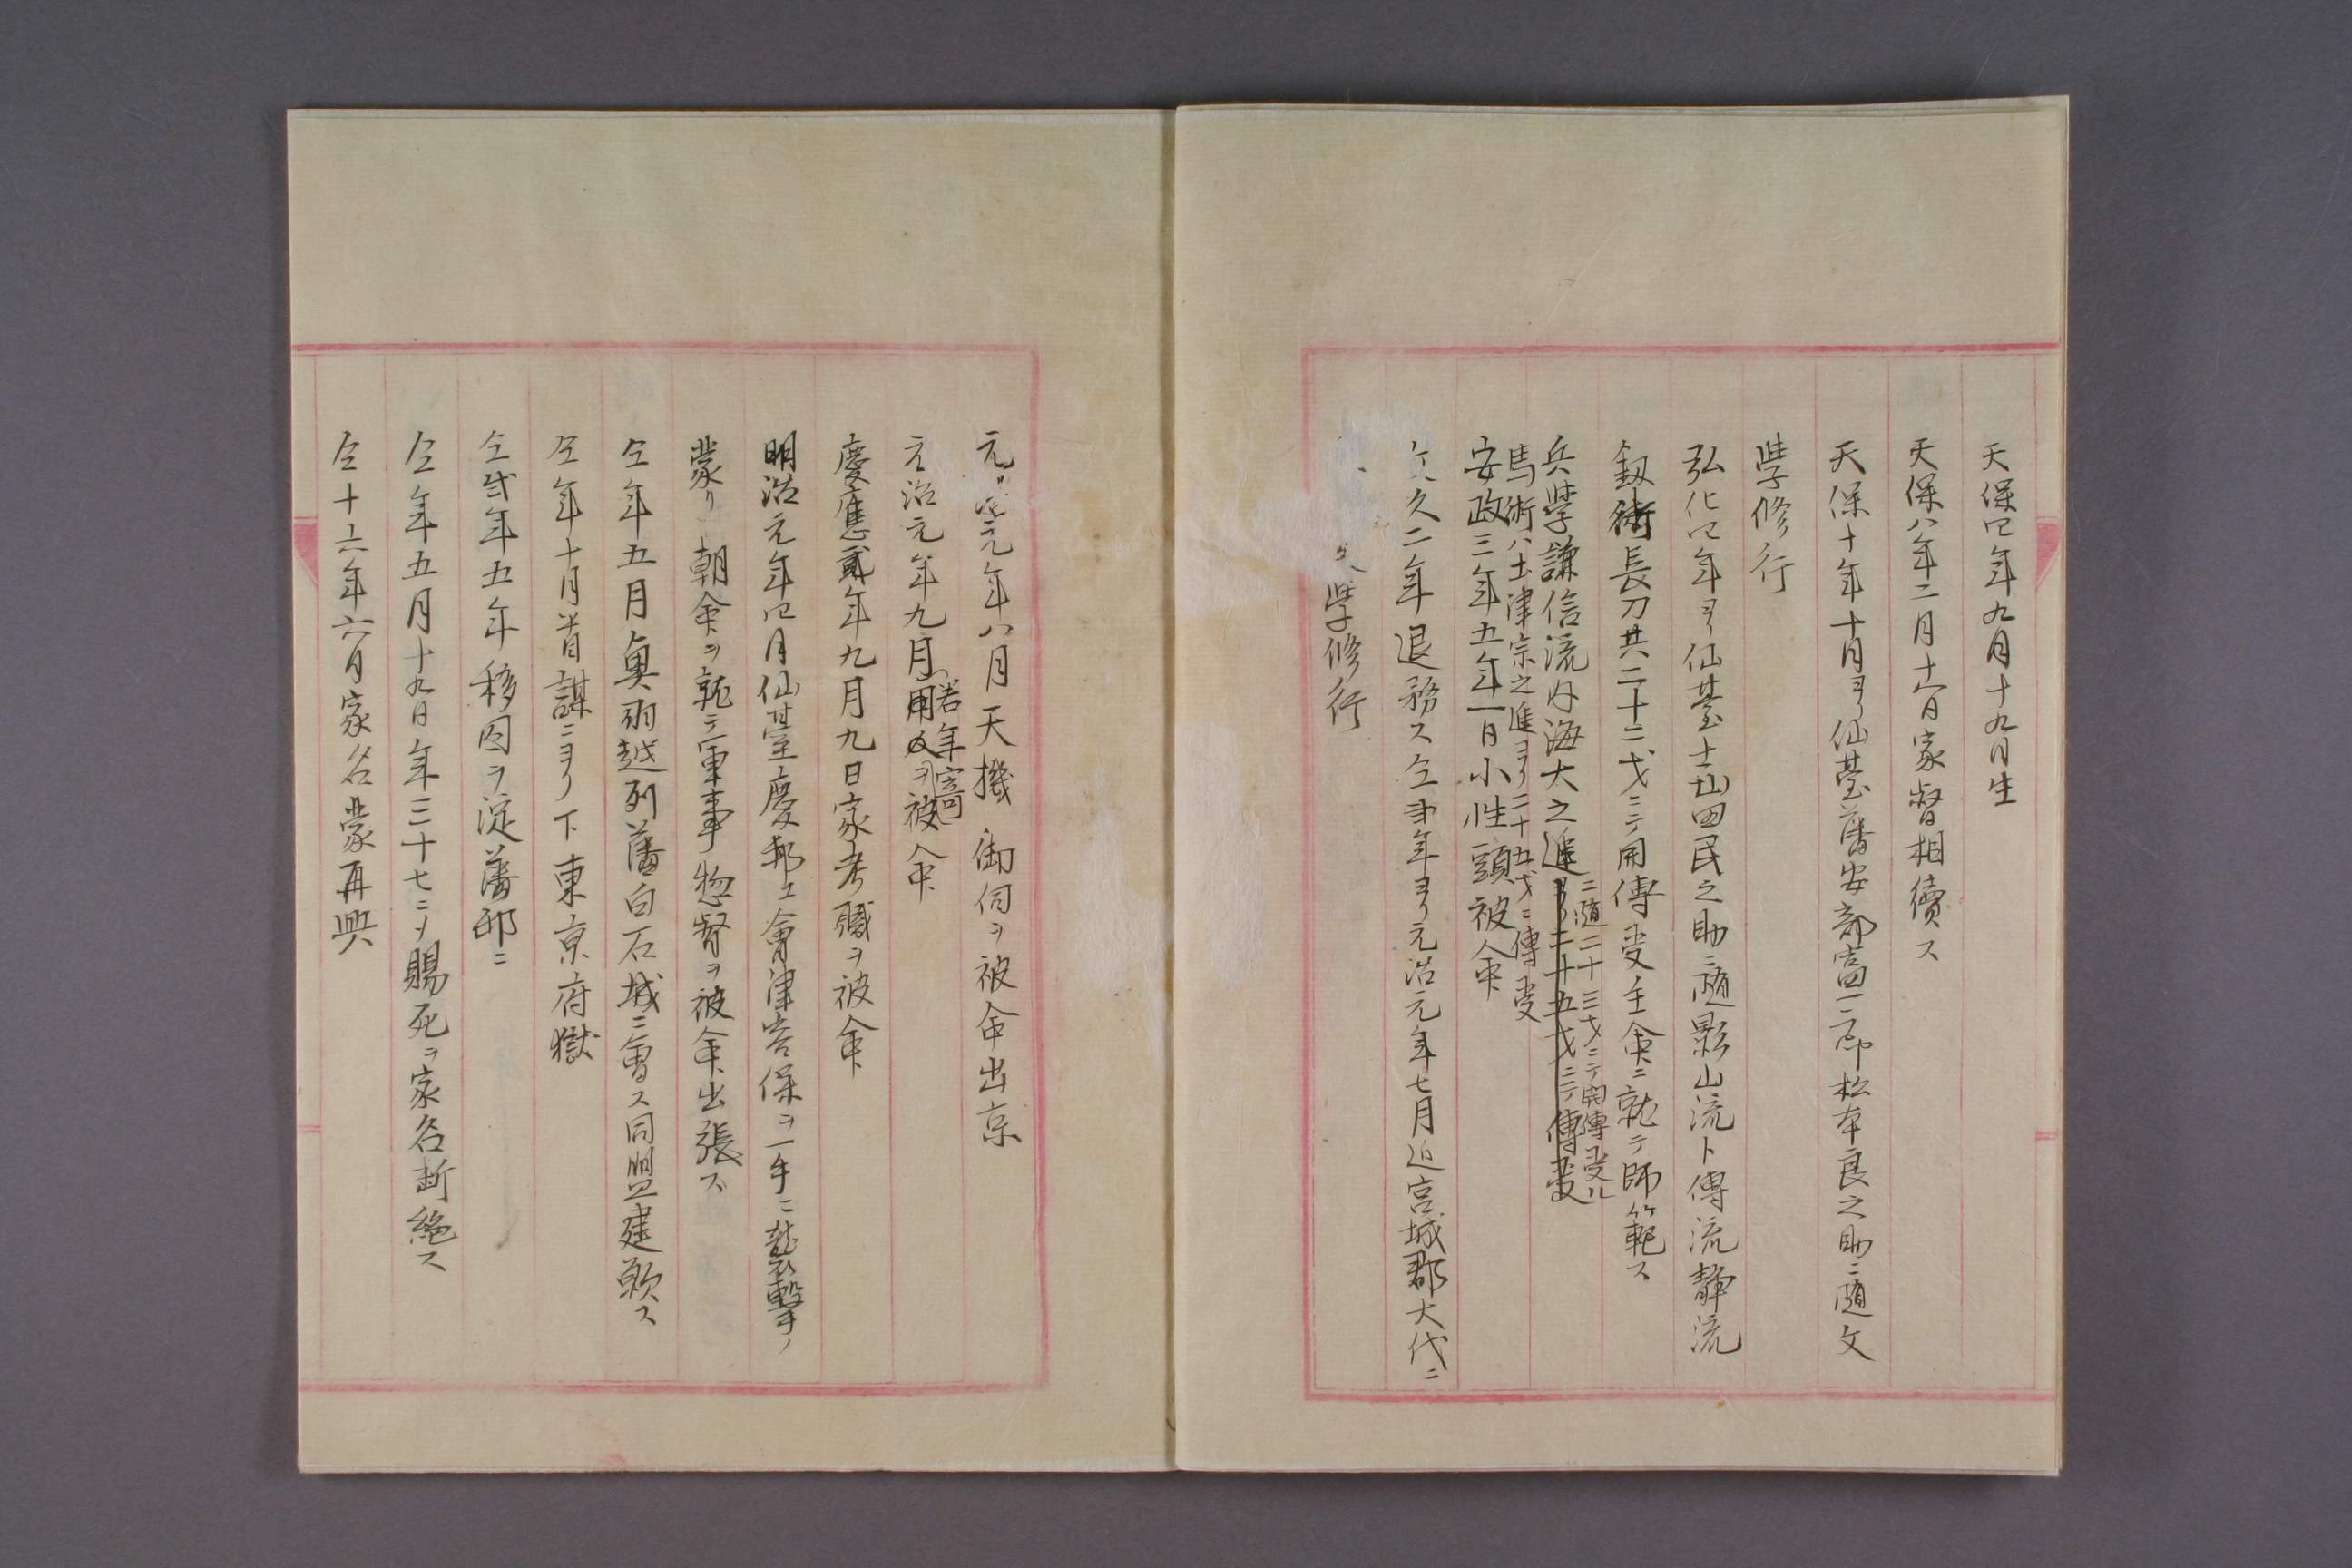 天保四年九月十九月生
天保八年二月十六日家督相續ス
天保十年十月ヨリ仙䑓藩安部富一二郎松本良之助ニ随文
学修行
弘化四年ヨリ仙䑓士山田民之助ニ随影山流卜傳流静流
釼術長刀共二十二才ニテ開傳受主命ニ就テ師範ス
兵学謙信流内海大之進ニ随二十三才ニテ開傳受ル
ヨリ二十五才ニテ傳受
馬術ハ土津宗之進ヨリ二十五才ニ傳受
安政三年五年一日小性頭被命
久二年退務ス仝弐年ヨリ元治元年七月迄宮城郡大代ニ
文学修行
元治元年八月天機御伺ヲ被命出京
元治元年九月若年寄ヲ被命
慶應貳年九月九日家老職ヲ被命
明治元年四月仙臺慶邦エ會津容保ヲ一手ニ襲撃ノ
蒙リ朝命ヲ就テ軍事惣督ヲ被命出張ス
仝年五月奥羽越列藩白石城ニ會ス同盟建歃ス
仝年十月首謀ニヨリ下東京府獄
仝弐年五年移囚ヲ淀藩邸ニ
仝年五月十九日年三十七ニメ賜死ヲ家名断絶ス
仝十六年六月家名蒙再興